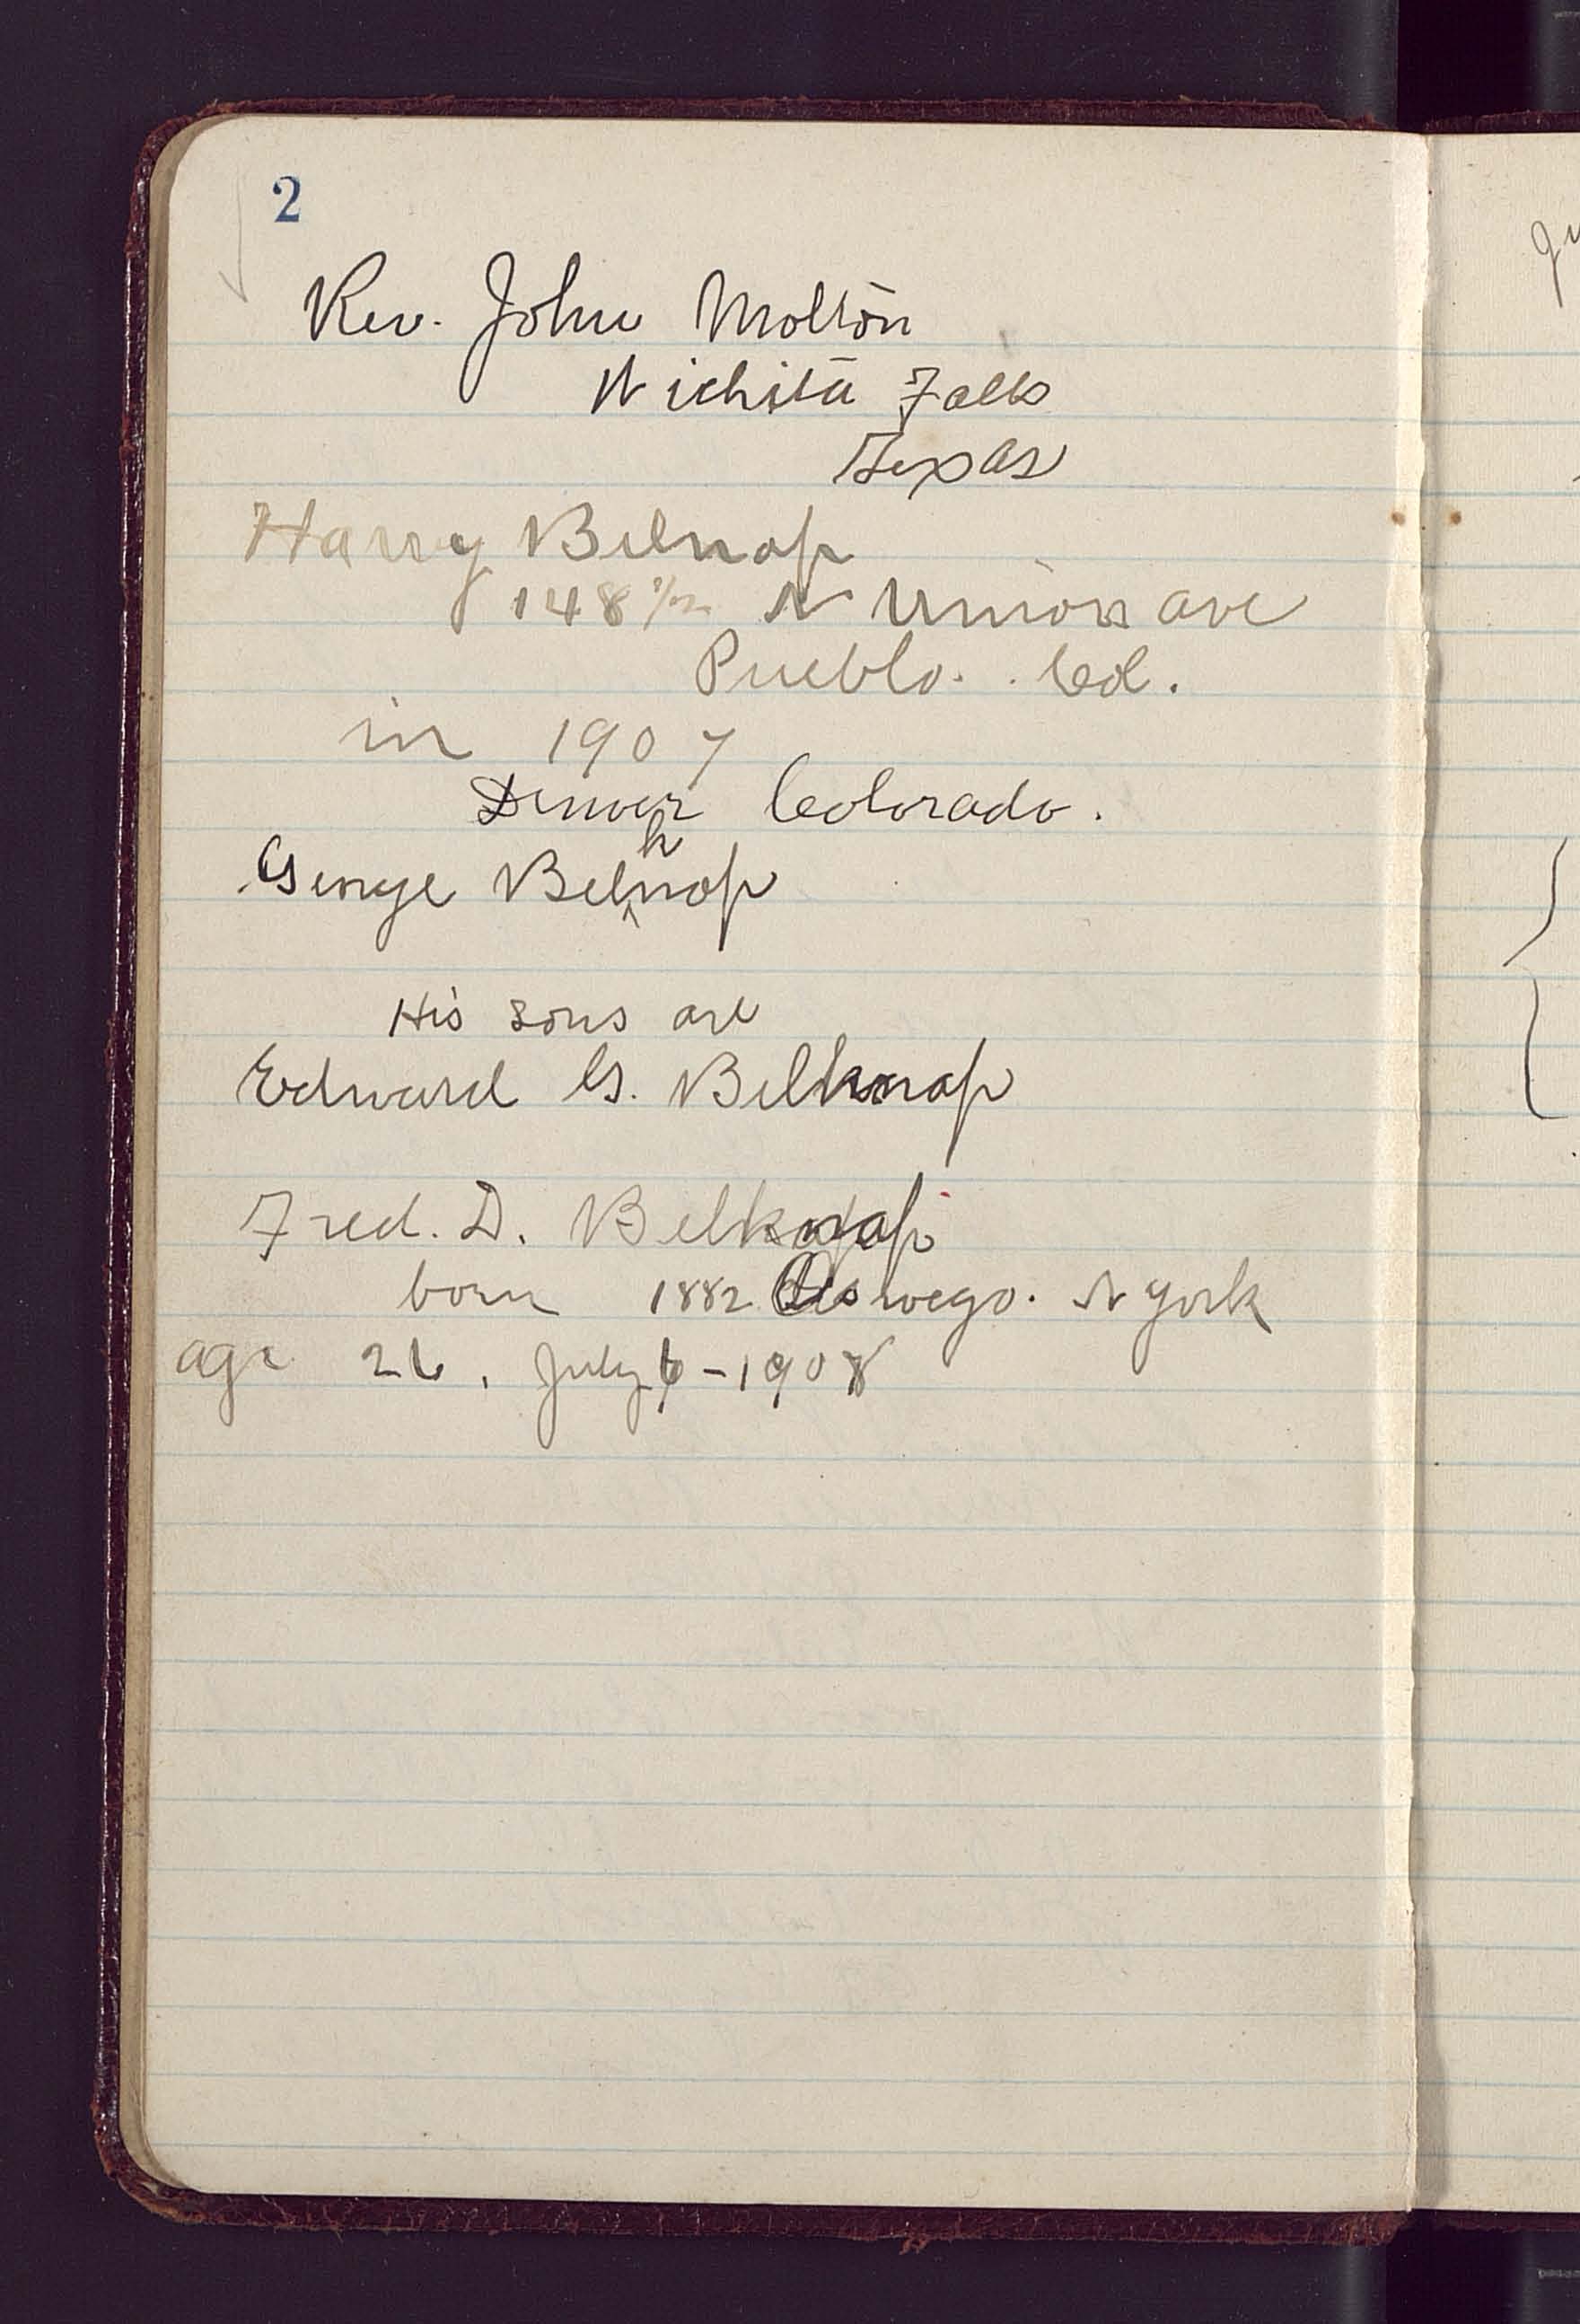 2
Rev. John Molton
Wichita Falls
Texas
Harry Belnap
148 1/2 N Union ave
Pueblo. . Col.
in 1907
Denver Colorado.
George Belknap
His sons are
Edward G. Belknap
Fred. D. Belknap
born 1882 Oswego. N York
age 26, July 6 - 1908